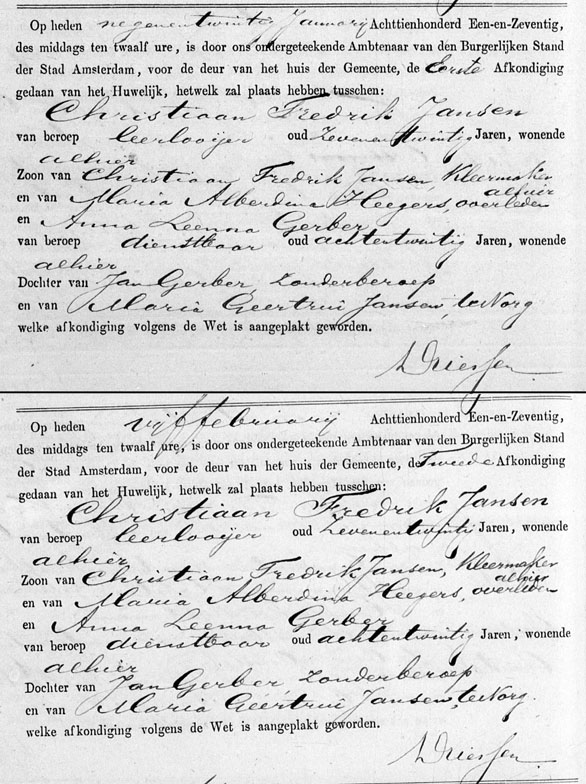 Op heden negenentwintig Januarij Achttienhonderd Een-en-Zeventig,
des middags ten twaalf ure, is door ons ondergeteekende Ambtenaar van den Burgerlijken Stand
der Stad Amsterdam, voor de deur van het huis der Gemeente, de Eerste Afkondiging
gedaan van het Huwelijk, hetwelk zal plaats hebben tusschen:
Christiaan Fredrik Jansen
van beroep leerlooijer oud Zevenentwintig Jaren, wonende
alhier
Zoon van Christiaan Fredrik Jansen, Kleermaker
alhier
en van Maria Alberdina Heegers, overleden
en Anna Leenna Gerber
van beroep dienstbaar oud achtentwintig Jaren, wonende
alhier
Dochter van Jan Gerber, Zonderberoep
en van Maria Geertrui Jansen, te Norg
welke afkondiging volgens de Wet is aangeplakt geworden.
Driessen
Op heden vijf februarij Achttienhonderd Een-en-Zeventig,
des middags ten twaalf ure, is door ons ondergeteekende Ambtenaar van den Burgerlijken Stand
der Stad Amsterdam, voor de deur van het huis der Gemeente, de Tweede Afkondiging
gedaan van het Huwelijk, hetwelk zal plaats hebben tusschen:
Christiaan Fredrik Jansen
van beroep leerlooijer oud Zevenentwintig Jaren, wonende
alhier
Zoon van Christiaan Fredrik Jansen, Kleermaker
alhier
en van Maria Alberdina Heegers, overleden
en Anna Leenna Gerber
van beroep dienstbaar oud achtentwintig Jaren, wonende
alhier
Dochter van Jan Gerber Zonderberoep
en van Maria Geertrui Jansen, te Norg.
welke afkondiging volgens de Wet is aangeplakt geworden.
Driessen